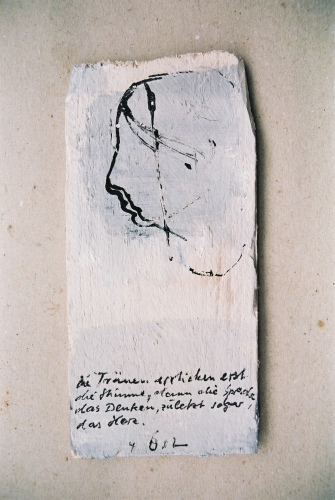 die Tränen ersticken erst
die Stimme, dann die Sprache
das Denken, zuletzt sogar
das Herz.